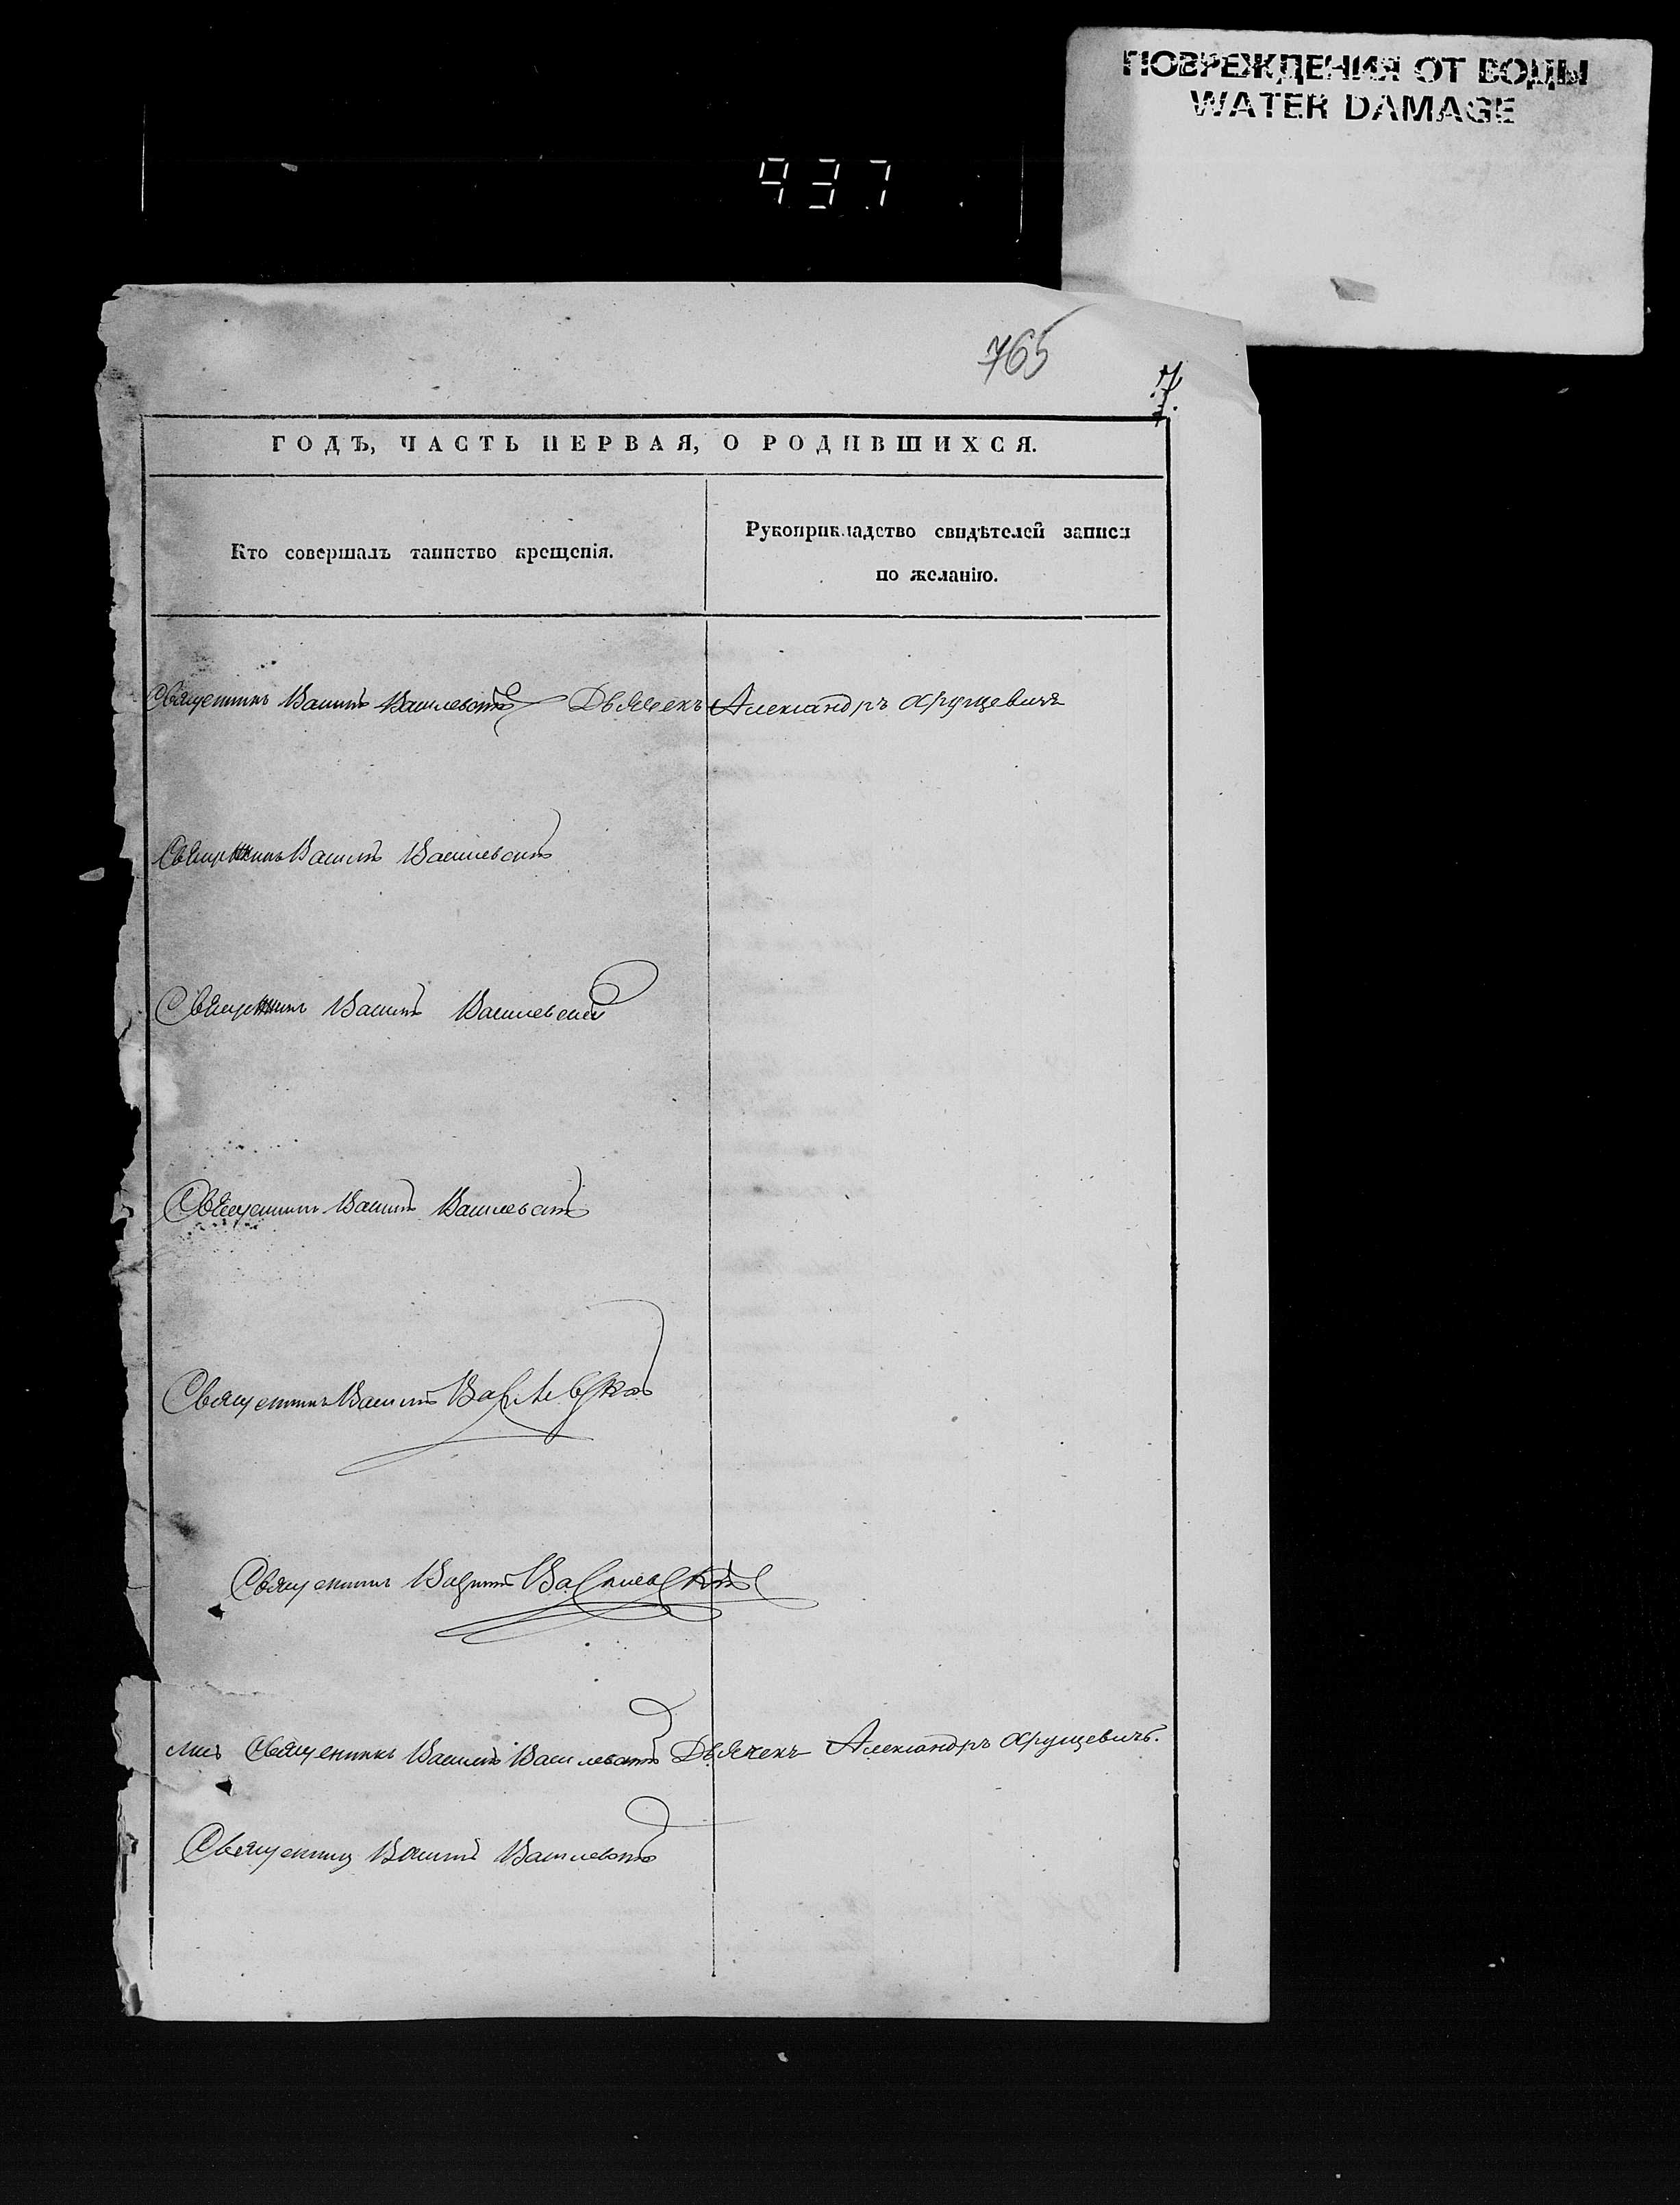 ПОВРЕЖДЕНИЯ ОТ ВОДЫ
WATER DAMAGE
937
765
7.
ГОДЪ, ЧАСТЬ ПЕРВАЯ, О РОДИВШИХСЯ.
Кто совершалъ таинство крещенія.
Рукоприкладство свидѣтелей записи
по желанію.
Священникъ Василій Василевскій Дьячекъ Александръ Хрущевичъ
Священникъ Василій Василевскій
Священникъ Василій Василевскій
Священникъ Василій Василевскій
Священникъ Василій Василевскій
Священникъ Василій Василевскій
Священникъ Василій Василевскій Дьячекъ Александръ Хрущевичъ.
Священникъ Василій Василевскій